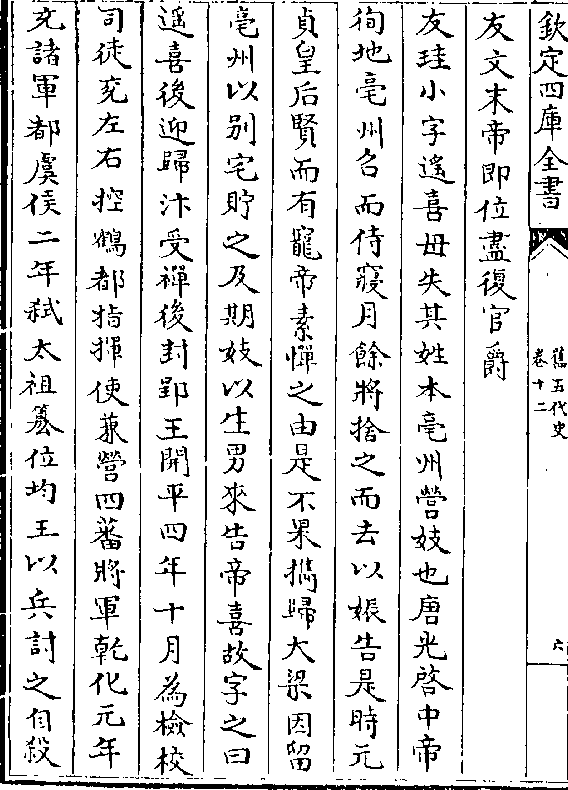 欽定四庫全書
舊五代史
卷十二
六
友文末帝即位盡復官爵
友珪小字遙喜母失其姓本亳州營妓也唐光啓中帝
徇地亳州召而侍寢月餘將捨之而去以娠告是時元
貞皇后賢而有寵帝素憚之由是不果攜歸大梁因留
亳州以别宅貯之及期妓以生男來告帝喜故字之曰
遥喜後迎歸汴受禪後封郢王開平四年十月為檢校
司徒充左右控鶴都指揮使兼管四蕃將軍乾化元年
充諸軍都虞侯二年弑太祖簒位均王以兵討之自殺